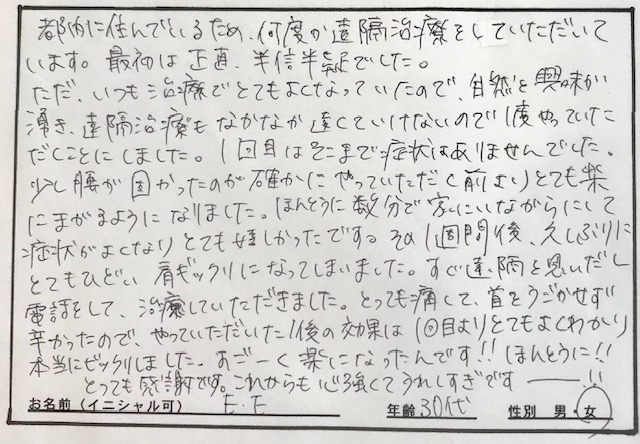 都内に住んでいるため、何度か遠隔治療をしていただいて
います。最初は正直、半信半疑でした。
ただ、いつも治療でとてもよくなっていたので、自然と興味が
湧き、遠隔治療もなかなか遠くていけないので1度やっていた
だくことにしました。1回目はそこまで症状はありませんでした。
少し腰が固かったのが確かにやっていただく前よりとても楽
にまがるようになりました。ほんとうに数分で家にいながらにして
症状がよくなりとても嬉しかったです。その1週間後、久しぶりに
とてもひどい肩ギックリになってしまいました。すぐ遠隔を思いだし
電話をして、治療していただきました。とっても痛して、首をうごかせず
辛かったので、やっていただいた後の効果は1回目よりとてもよくわかり
本当にビックリしました。すごーく楽になったんです!!ほんとうに!!
とっても感謝です。これからも心強くてうれしすぎですーー!!
お名前(イニシャル可) E・E 年齢 30代 性別 男・女